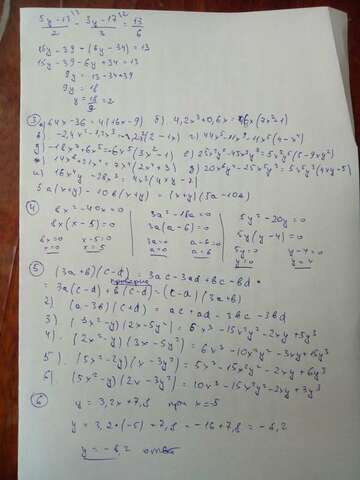 (5y-13)/2 - (3y-17)/3 = 13/6
15y-39-(6y-34)=13
15y-39-6y+34=13
9y = 13-34+39
9y = 18
y = 18/9 = 2
③ 64x-36=4(16x-9) б) 4,2x³+0,6x=0,6x(7x²+1)
г) 44x⁵-11x⁷=11x⁵(4-x²)
д) -18x³+6x⁵= е) 25x²y⁶-45x³y⁸=5x²y⁶(5-9xy²)
ж) 14x⁴+21x²=7x²(2x²+3) 20x⁶y²-25x⁵y³=5x⁵y²(4x-5y)
5a(x+y)-10b(x+y)=(x+y)(5a-10b)
④ 8x²-40x=0 3a²-18a=0 5y²-20y=0
8x(x-5)=0 3a(a-6)=0 5y(y-4)=0
8x=0 x-5=0 3a=0 a-6=0 5y=0 y-4=0
x=0 x=5 a=0 a=6 y=0 y=4
⑤ (3a+b)(c-d)=3ac-3ad+bc-bd=
=3a(c-d)+b(c-d)=(c-d)(3a+b)
2) (a-3b)(c+d)=ac+ad-3bc-3bd
3) (3x²-y)(2x-5y²)=6x³-15x²y²-2xy+5y³
4) (2x²-y)(3x-5y²)=6x³-10x²y²-3xy+5y³
5) (5x²-2y)(x-3y²)=5x³-15x²y²-2xy+6y³
6) (5x²-y)(2x-3y²)=10x³-15x²y²-2xy+3y³
⑥ y=3,2x+7,8 при x=-5
y=3,2•(-5)+7,8=-16+7,8=-8,2
y=-8,2 ответ